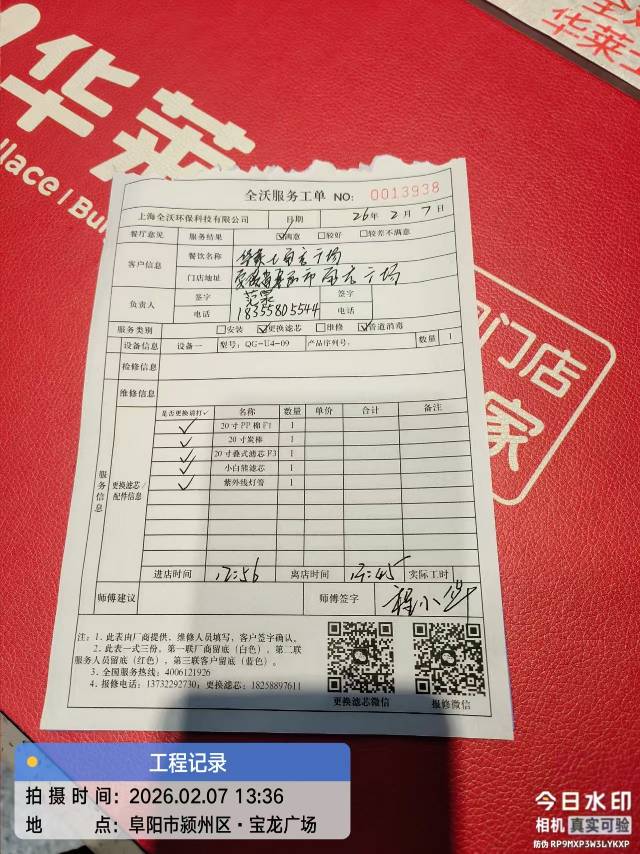 华莱
llace | Bu
华莱
门店
家
全沃服务工单 NO: 0013938
上海全沃环保科技有限公司 日期 26年 2月 7日
餐厅意见 服务结果 ☑满意 ☐较好 ☐较差不满意
客户信息 餐饮名称 华莱士
门店地址 安徽省阜阳市 广场
负责人 签字 签字
电话 18355805544 电话
服务类别 ☐安装 ☑更换滤芯 ☐维修 ☑管道消毒
设备信息 设备一 型号: QG-U4-09 产品序列号: 数量 1
检修信息
维修信息
服务信息 更换滤芯/配件信息
是否更换请打✓ 名称 数量 单价 合计 备注
✓ 20寸PP棉F1 1
✓ 20寸炭棒 1
✓ 20寸叠式滤芯F3 1
✓ 小白熊滤芯 1
✓ 紫外线灯管 1
进店时间 12:56 离店时间 13:45 实际工时
师傅建议 师傅签字 程小华
注: 1. 此表由厂商提供, 维修人员填写, 客户签字确认。
2. 此表一式三份。第一联厂商留底(白色), 第二联
服务人员留底(红色), 第三联客户留底(蓝色)。
3. 全国服务热线: 4006121926
4. 报修电话: 13732292730; 更换滤芯: 18258897611
更换滤芯微信 报修微信
工程记录
拍摄时间: 2026.02.07 13:36
地 点: 阜阳市颍州区·宝龙广场
今日水印
相机 真实可验
防伪 RP9MXP3W3LYKXP